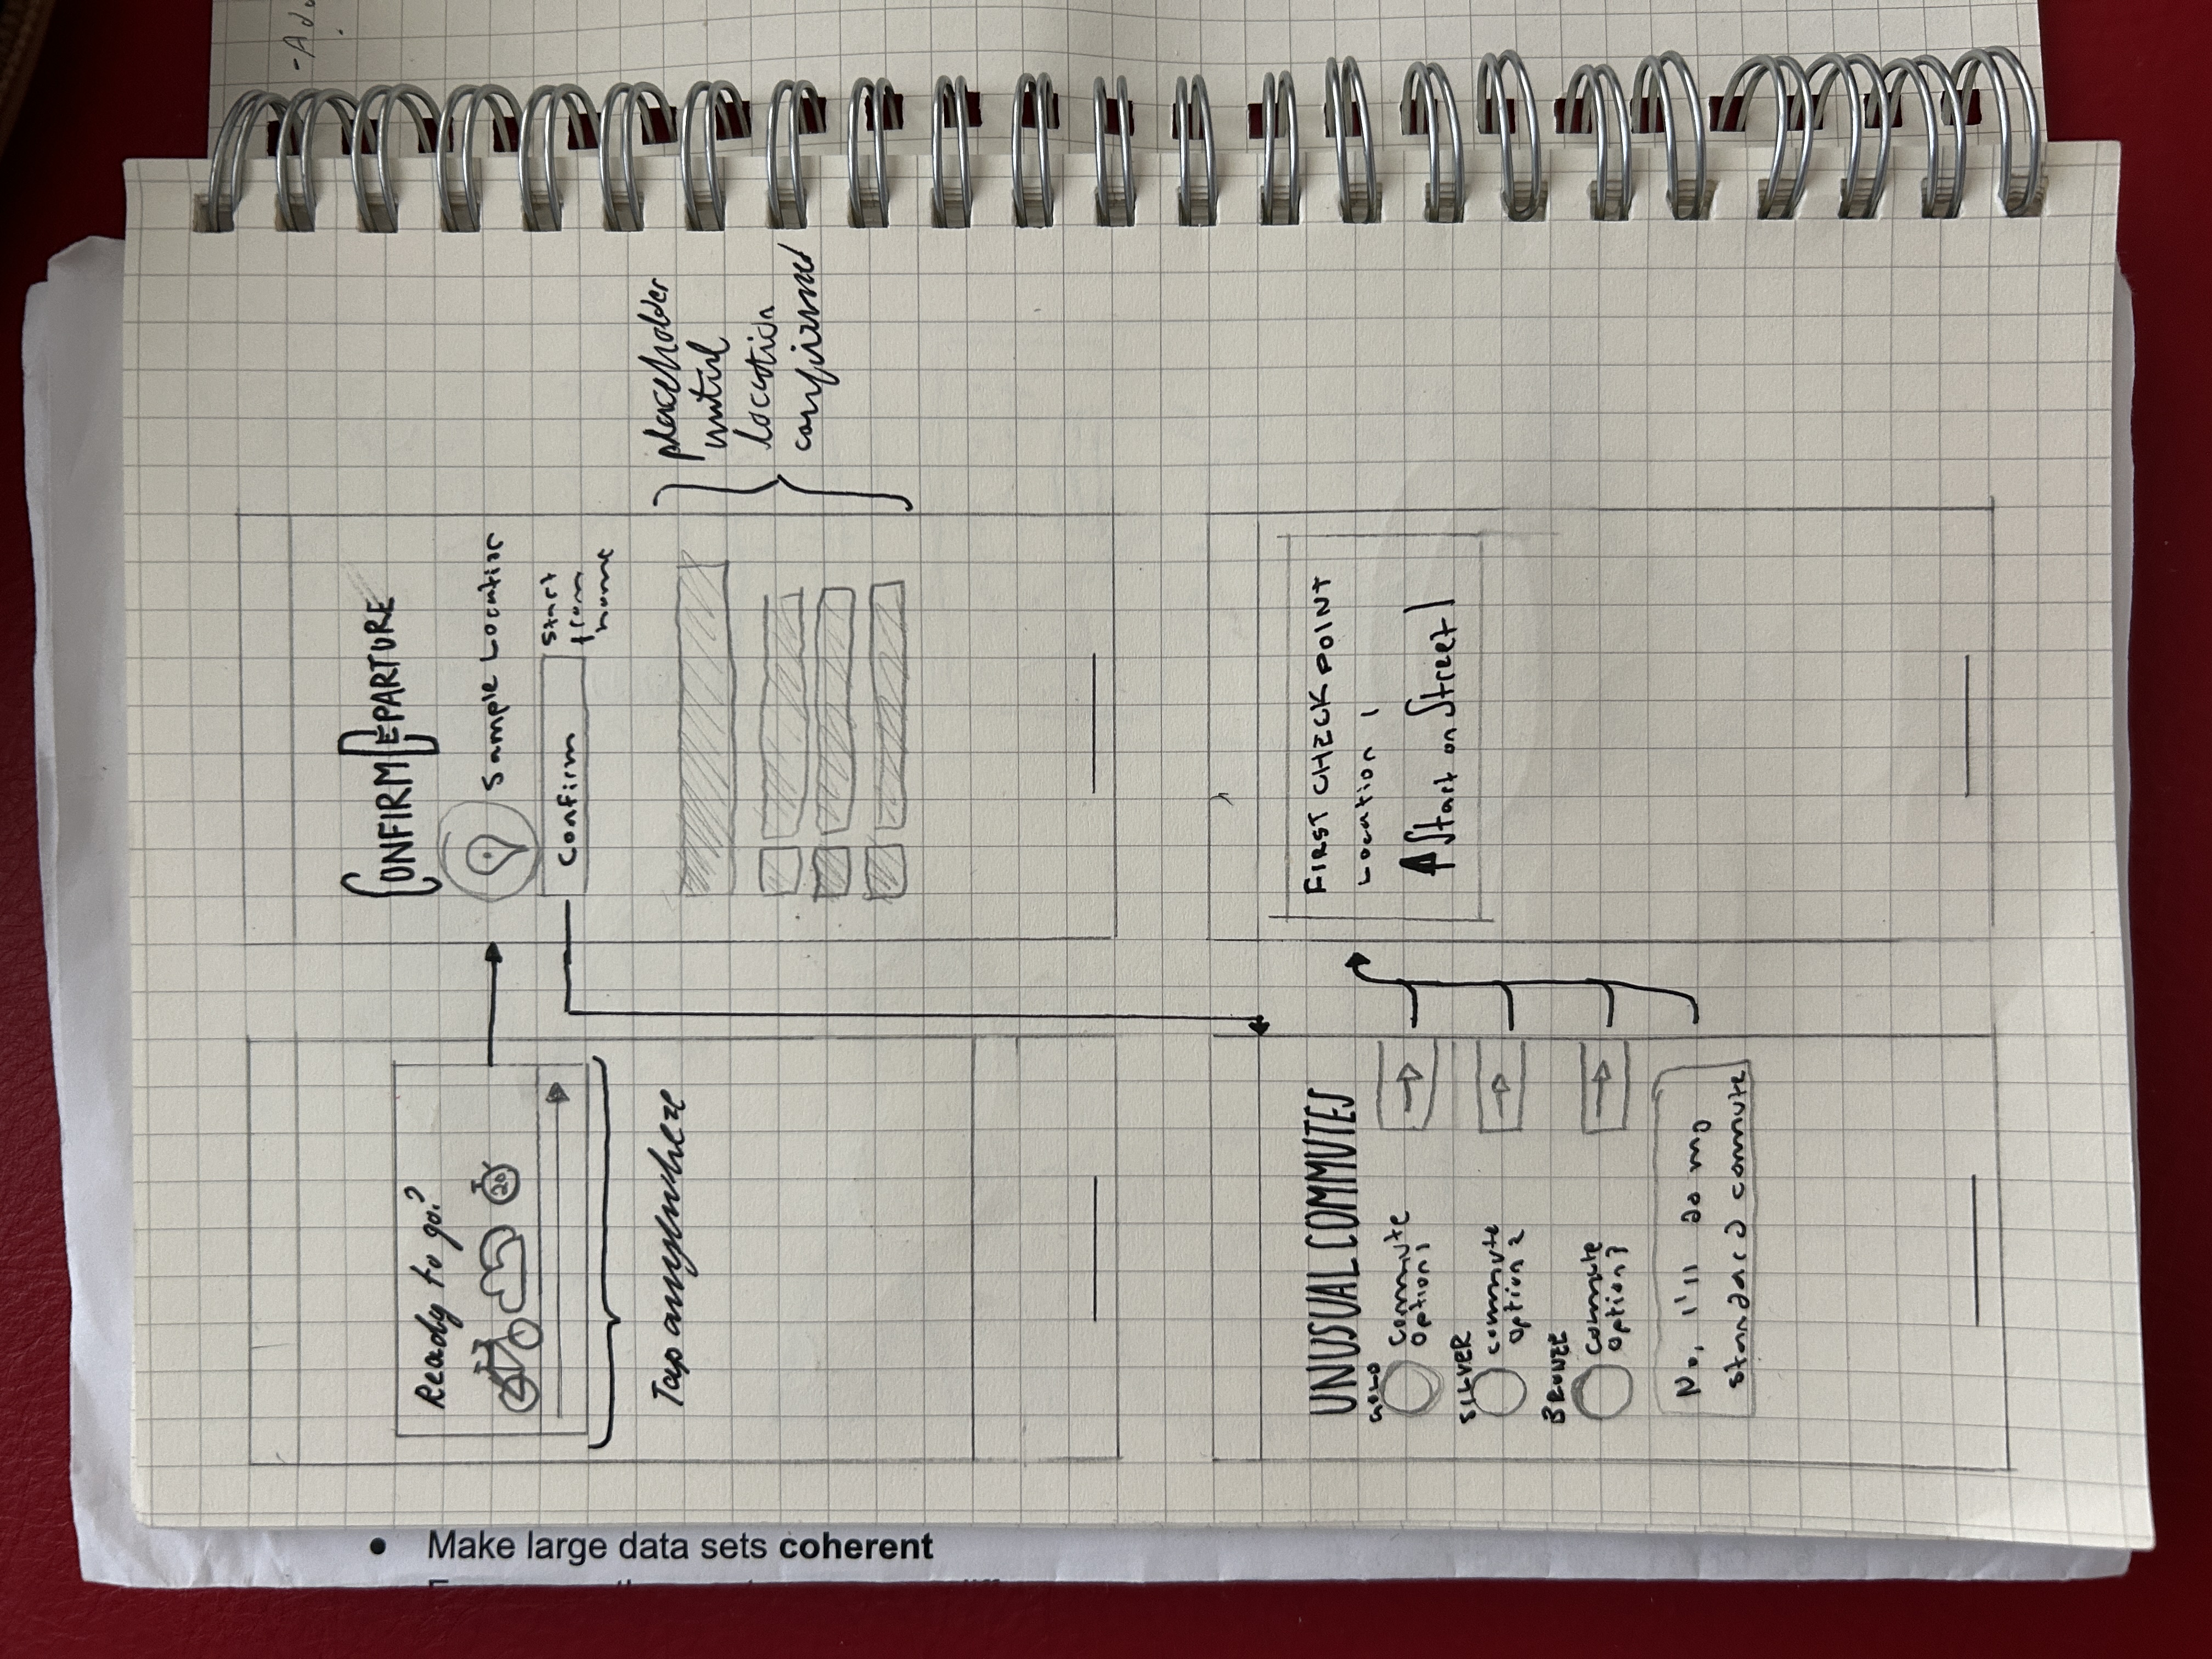 Ready to go?
20
Tap anywhere
CONFIRM DEPARTURE
Sample Location
Confirm
Start
from
home
placeholder
until
location
confirmed
UNUSUAL COMMUTES
GOLD
commute
option 1
SILVER
commute
option 2
BRONZE
commute
option 3
No, I'll do my
standard commute
FIRST CHECKPOINT
Location 1
Start on Street 1
• Make large data sets coherent